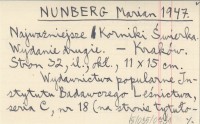 NUNBERG Marian 1947.
Najważniejsze Korniki Świerka.
Wydanie drugie. — Kraków.
Stron 32, il., obl., 11 x 15 cm.
Wydawnictwa popularne In-
stytutu Badawczego Leśnictwa,
seria C, nr 18 (na stronie tytuło-